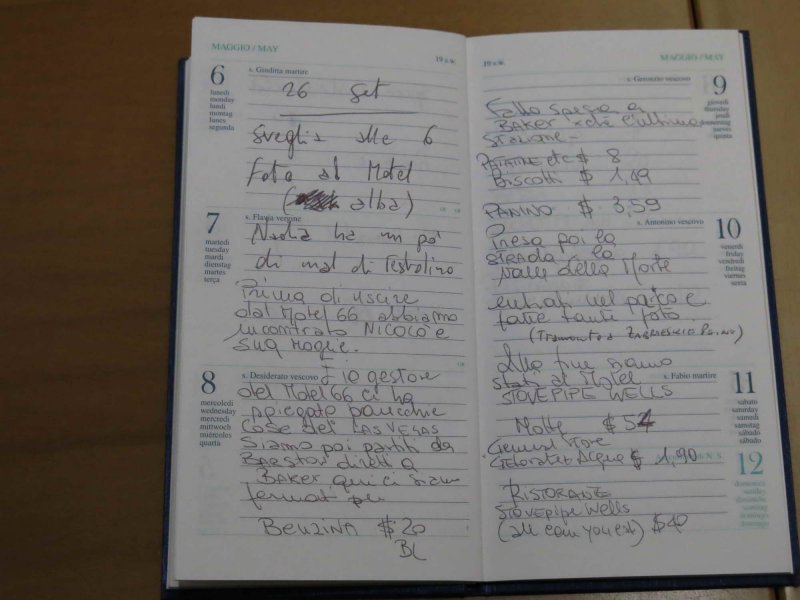 MAGGIO / MAY
19 s./w.
6
s. Giuditta martire
lunedì
monday
lundi
montag
lunes
segunda
26 Set
Sveglia alle 6
Foto al Motel
( alba)
7
s. Flavia vergine
martedì
tuesday
mardi
dienstag
martes
terça
Nadia ha un po'
di mal di Testolina
Prima di uscire
dal Motel 66 abbiamo
incontrato NICOCÒ e
sua moglie.
8
s. Desiderato vescovo
mercoledì
wednesday
mercredi
mittwoch
miércoles
quarta
Il gestore
del Motel 66 ci ha
spiegato parecchie
cose del LAS VEGAS
Siamo poi partiti da
BARSTOW diretti a
BAKER qui ci siamo
fermati per
BENZINA $ 20
BL
19 s./w.
MAGGIO / MAY
s. Geronzio vescovo
9
giovedì
thursday
jeudi
donnerstag
jueves
quinta
Fatto spesa a
BAKER che è l'ultima
stazione -
PATATINE etc $ 8
BISCOTTI $ 1,49
PANINO $ 3,59
s. Antonino vescovo
10
venerdì
friday
vendredi
freitag
viernes
sexta
Presa poi la
STRADA x la
Valle della Morte
entrati nel parco e
fatte tante foto.
(Tramonto a ZABRIESKIE POINT)
Alla fine siamo
stati al Motel
STOVEPIPE WELLS
s. Fabio martire
11
sabato
saturday
samedi
samstag
sábado
sábado
Notte $ 54
General Store
Gelato + Acqua $ 1,90
N.S.
12
domenica
sunday
dimanche
sonntag
domingo
domingo
RISTORANTE
STOVEPIPE Wells
(all can you eat) $ 40